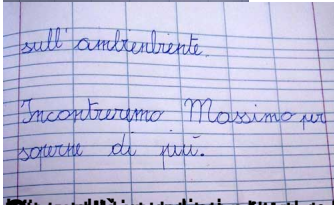 sull'ambienbiente.
Incontreremo Massimo per
saperne di più.